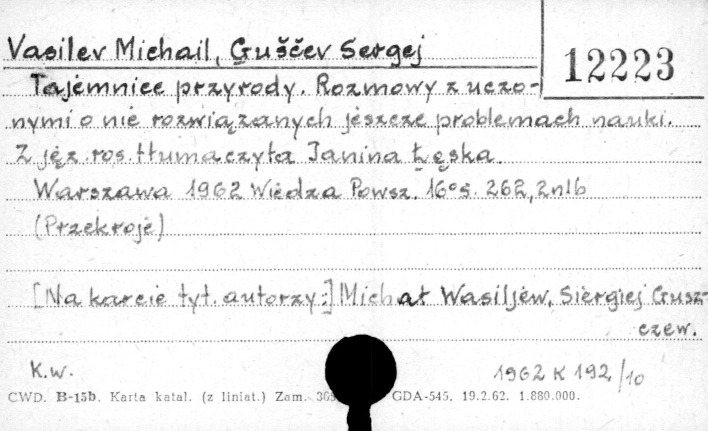 Vasilev Michail, Guščev Sergej
12223
Tajemnice przyrody. Rozmowy z uczo-
nymi o nie rozwiązanych jeszcze problemach nauki.
Z jęz. ros. tłumaczyła Janina Łęska.
Warszawa 1962 Wiedza Powsz. 16° s. 262, 2nlb
(Przekroje)
[Na karcie tyt. autorzy:] Michał Wasiljew, Siergiej Gusz-
czew.
K.w.
1962 K 192/10
CWD. B-15b. Karta katal. (z liniat.) Zam. GDA-545. 19.2.62. 1.880.000.